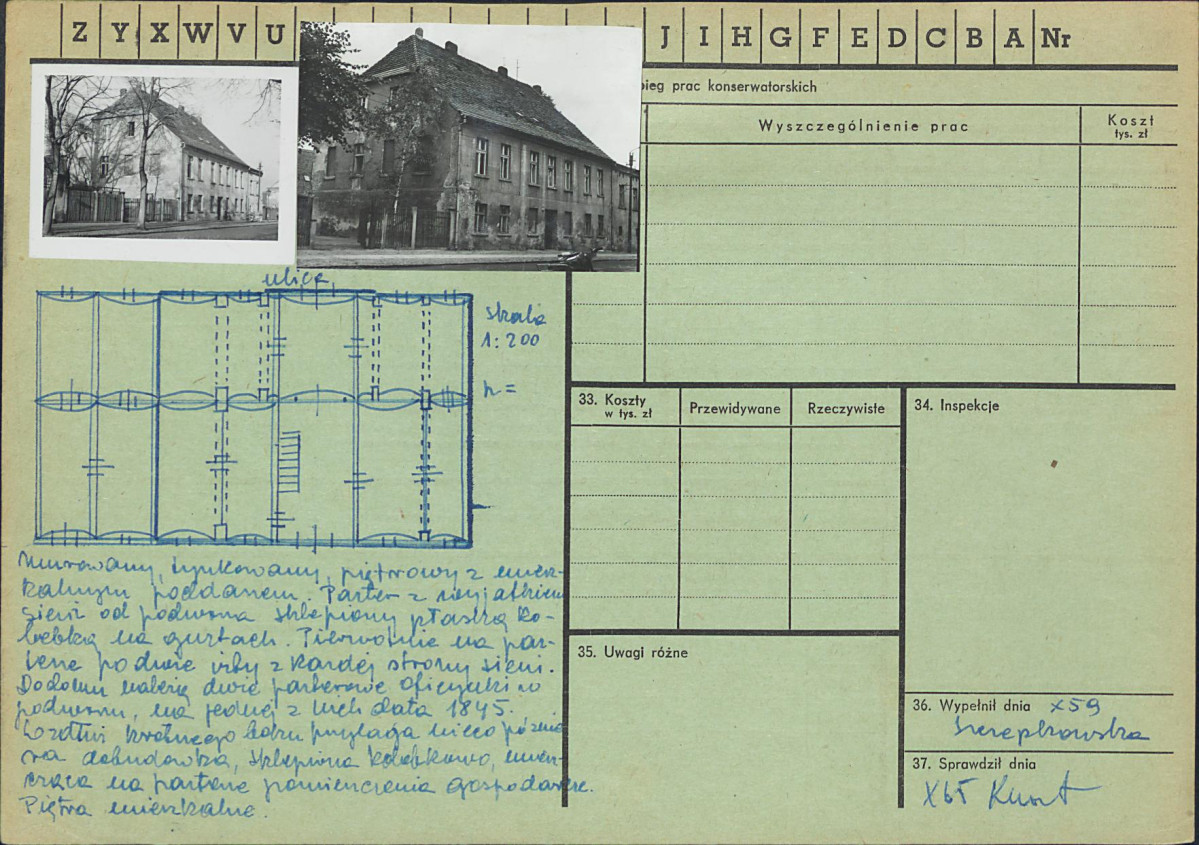 Z Y X W V U J I H G F E D C B A Nr
bieg prac konserwatorskich
Wyszczególnienie prac
Koszt
tys. zł
ulica
skala
1:200
h =
33. Koszty
w tys. zł
Przewidywane
Rzeczywiste
34. Inspekcje
35. Uwagi różne
36. Wypełnił dnia X 59
37. Sprawdził dnia
X 65
Murowany, tynkowany, piętrowy z miesz-
kalnym poddaszem. Parter z wyjątkiem
sieni od podwórza sklepiony płaską ko-
lebką na gurtach. Pierwotnie na par-
terze po dwie izby z każdej strony sieni.
Do domu należą dwie parterowe oficynki w
podwórzu, na jednej z nich data 1845.
Wzdłuż krótszego boku przylega nieco później
sza dobudówka, sklepiona kolebkowo, miesz-
cząca na parterze pomieszczenia gospodarcze.
Piętra mieszkalne.